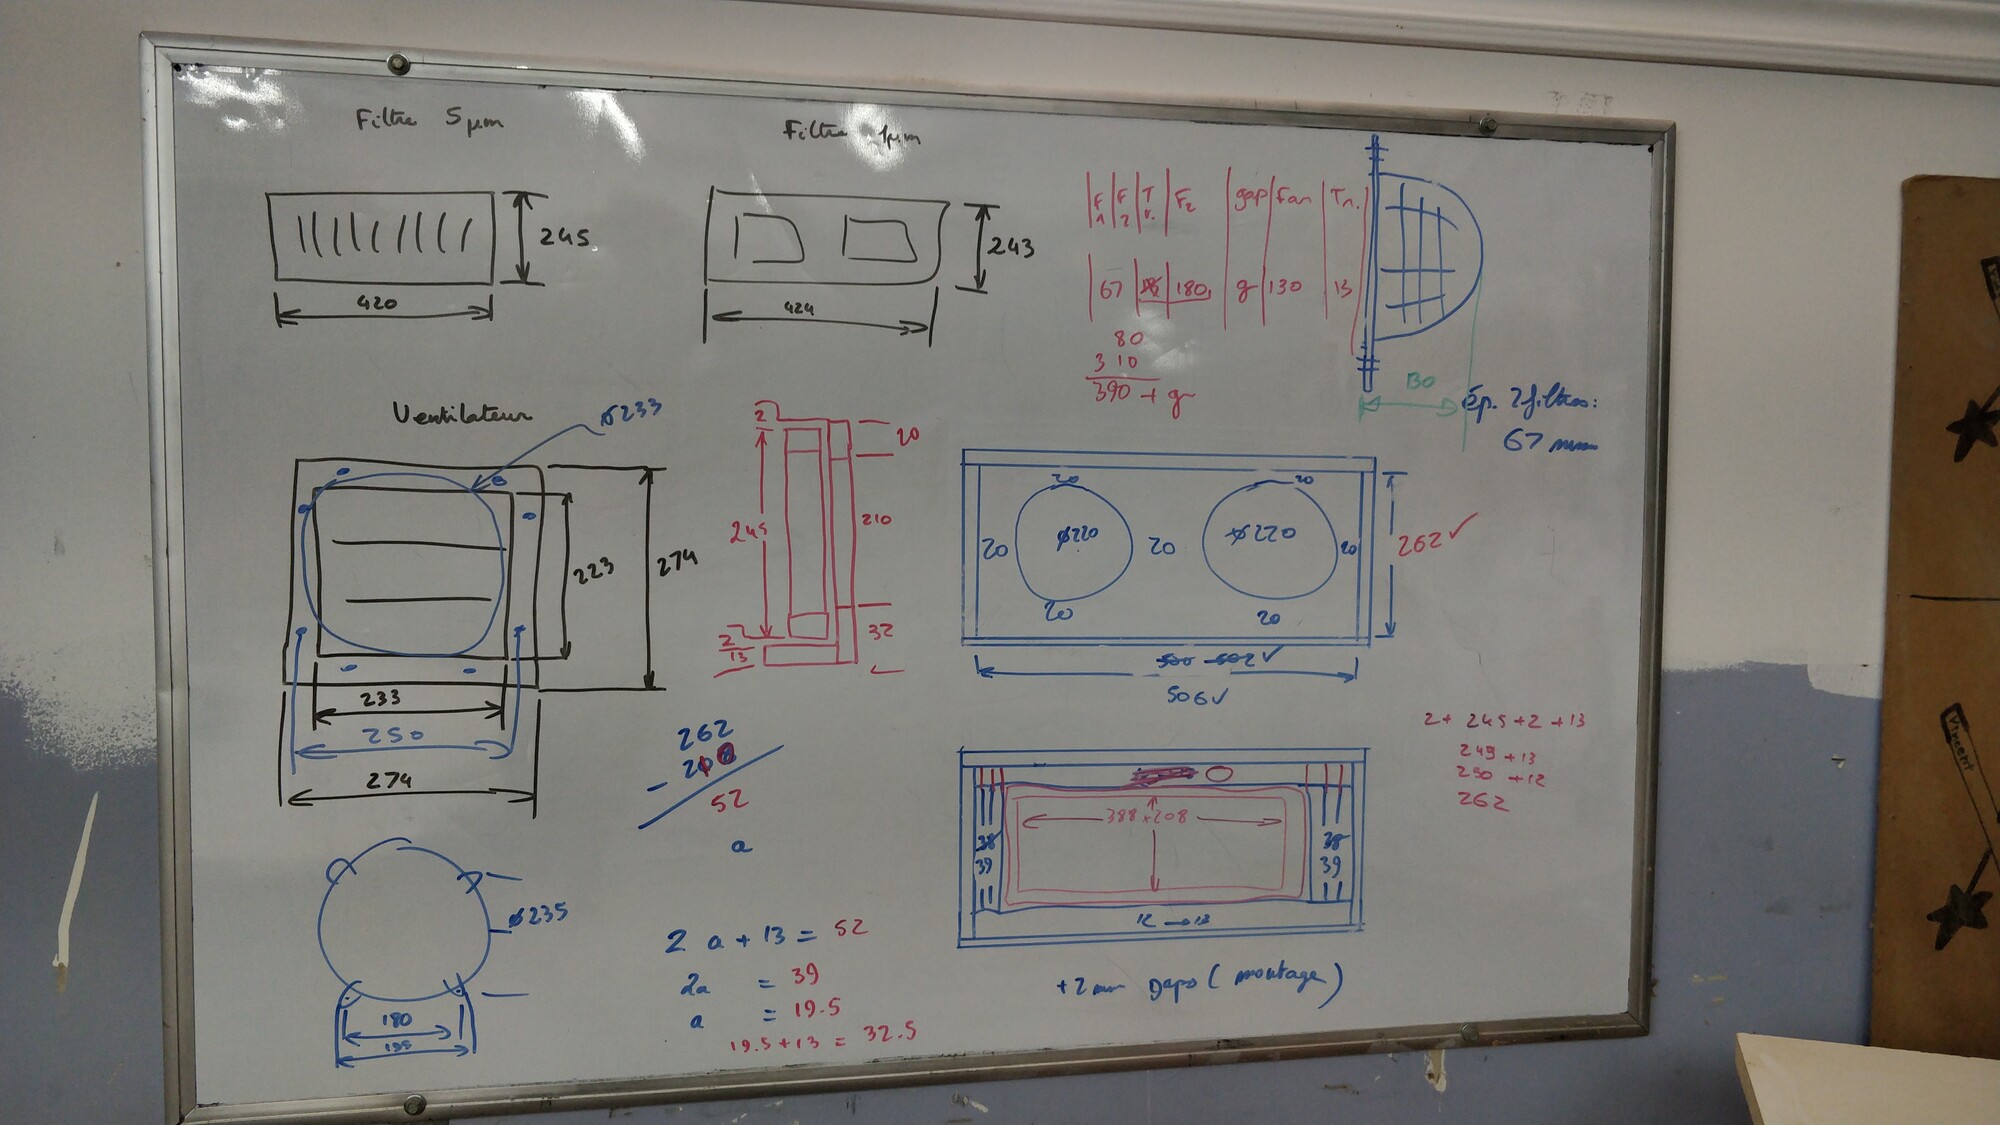 Filtre 5µm
245
420
Filtre 1µm
243
424
F1 F2 T F2 gap Fan Tn.
67 180 g 130 13
80
310
390 + g
130
Ép. 2 filtres:
67 mm
Ventilateur
ø233
223
274
233
250
274
2
20
245
210
2
13
32
20 20
20 ø220 20 ø220 20
20 20
262 ✓
500 502 ✓
506 ✓
262
- 210
52
a
2 + 245 + 2 + 13
249 + 13
250 + 12
262
388 x 208
38 38
39 39
12 → 13
+2 mm gaps (montage)
ø235
180
195
2 a + 13 = 52
2a = 39
a = 19.5
19.5 + 13 = 32.5
Vincent